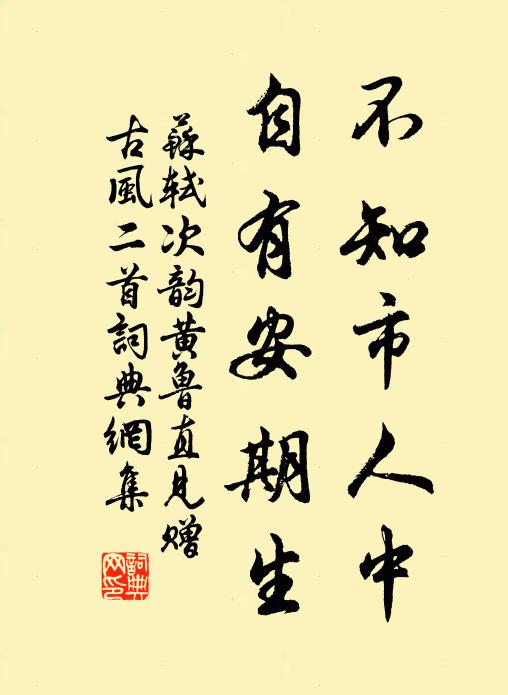 不知市人中
自有安期生
蘇軾次韵黄魯直見贈
古風二首詞典網集
詞典
网印